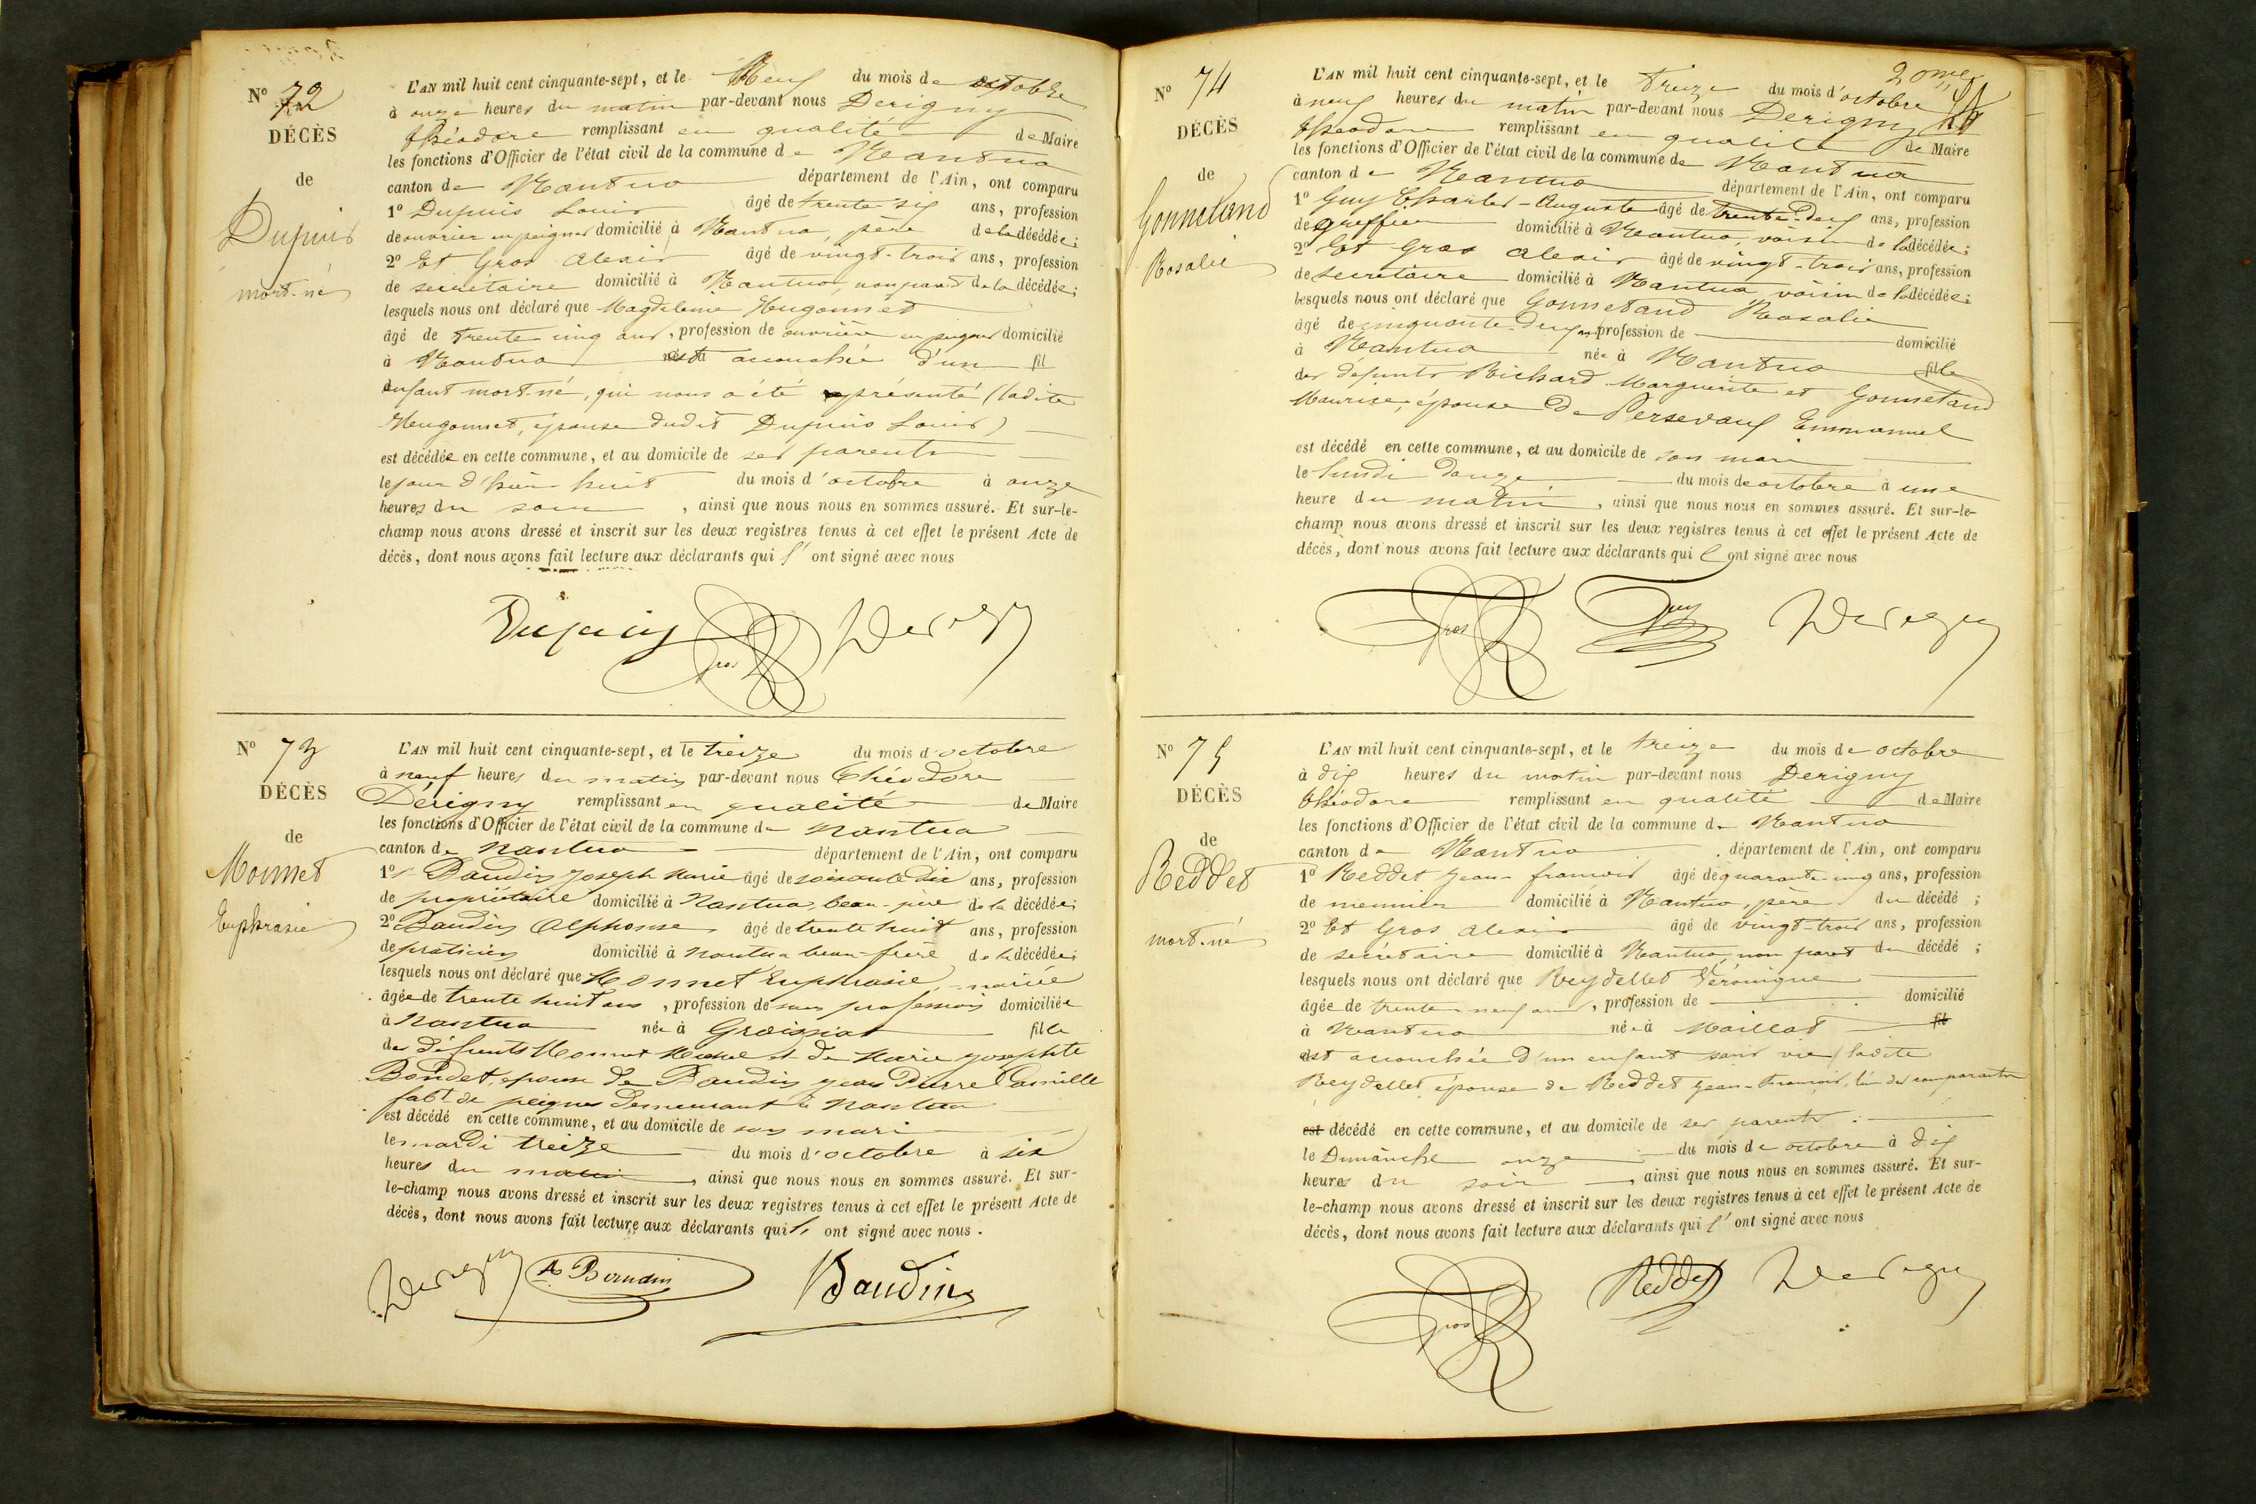 N° 72
DÉCÈS
de
Dupuis
mort-né
L'AN mil huit cent cinquante-sept, et le Neuf du mois de octobre
à onze heures du matin par-devant nous Derigny
théodore remplissant en qualité de Maire
les fonctions d'Officier de l'état civil de la commune de Nantua
canton de Nantua département de l'Ain, ont comparu
1° Dupuis Louis âgé de trente-six ans, profession
de ouvrier en peignes domicilié à Nantua, père de la décédée;
2° Et Gros Alexis âgé de vingt-trois ans, profession
de secrétaire domicilié à Nantua, non parent de la décédée;
lesquels nous ont déclaré que Magdeleine Hugonnet
âgé de trente cinq ans, profession de ouvrière en peignes domicilié
à Nantua est accouchée d'un fil
enfant mort-né, qui nous a été présenté (ladite
Hugonnet, épouse dudit Dupuis Louis)
est décédée en cette commune, et au domicile de ses parents
le jour d'hier huit du mois d'octobre à onze
heures du soir, ainsi que nous nous en sommes assuré. Et sur-le-
champ nous avons dressé et inscrit sur les deux registres tenus à cet effet le présent Acte de
décès, dont nous avons fait lecture aux déclarants qui l'ont signé avec nous
Dupuis Gros Derigny
N° 73
DÉCÈS
de
Monnet
Euphrasie
L'AN mil huit cent cinquante-sept, et le treize du mois d'octobre
à neuf heures du matin par-devant nous Théodore
Dérigny remplissant en qualité de Maire
les fonctions d'Officier de l'état civil de la commune de Nantua
canton de Nantua département de l'Ain, ont comparu
1° Baudin Joseph Marie âgé de soixante dix ans, profession
de propriétaire domicilié à Nantua, beau-père de la décédée;
2° Baudin Alphonse âgé de trente huit ans, profession
de praticien domicilié à Nantua beau-frère de la décédée;
lesquels nous ont déclaré que Monnet Euphrasie, mariée
âgée de trente huit ans, profession de sans profession domiciliée
à Nantua née à Groissiat fille
des défunts Monnet et de Marie Josephte
Bondet, épouse de Baudin Jean Pierre Camille
fabt de peignes demeurant à Nantua
est décédé en cette commune, et au domicile de son mari
le mardi treize du mois d'octobre à six
heures du matin, ainsi que nous nous en sommes assuré. Et sur-
le-champ nous avons dressé et inscrit sur les deux registres tenus à cet effet le présent Acte de
décès, dont nous avons fait lecture aux déclarants qui l' ont signé avec nous.
Derigny As Baudin Baudin
20me
N° 74
DÉCÈS
de
Gonnetand
Rosalie
L'AN mil huit cent cinquante-sept, et le treize du mois d'octobre
à neuf heures du matin par-devant nous Derigny
théodore remplissant en qualité de Maire
les fonctions d'Officier de l'état civil de la commune de Nantua
canton de Nantua département de l'Ain, ont comparu
1° Guy Charles-Auguste âgé de trente-deux ans, profession
de greffier domicilié à Nantua, voisin de la décédée;
2° Et Gros Alexis âgé de vingt-trois ans, profession
de secrétaire domicilié à Nantua voisin de la décédée;
lesquels nous ont déclaré que Gonnetand Rosalie
âgé de cinquante-deux ans profession de domicilié
à Nantua née à Nantua fille
des défunts Richard Marguerite et Gonnetand
Maurice, épouse de Persevaux Emmanuel
est décédé en cette commune, et au domicile de son mari
le lundi douze du mois de octobre à une
heure du matin, ainsi que nous nous en sommes assuré. Et sur-le-
champ nous avons dressé et inscrit sur les deux registres tenus à cet effet le présent Acte de
décès, dont nous avons fait lecture aux déclarants qui l'ont signé avec nous
Gros Guy Derigny
N° 75
DÉCÈS
de
Reddet
mort-né
L'AN mil huit cent cinquante-sept, et le treize du mois de octobre
à dix heures du matin par-devant nous Derigny
théodore remplissant en qualité de Maire
les fonctions d'Officier de l'état civil de la commune de Nantua
canton de Nantua département de l'Ain, ont comparu
1° Reddet Jean-francois âgé de quarante-cinq ans, profession
de meunier domicilié à Nantua, père du décédé;
2° Et Gros Alexis âgé de vingt-trois ans, profession
de secrétaire domicilié à Nantua, non parent du décédé;
lesquels nous ont déclaré que Reydellet Véronique
âgée de trente neuf ans, profession de domicilié
à Nantua née à Maillat fil
est accouchée d'un enfant sans vie (ladite
Reydellet épouse de Reddet Jean-francois, l'un des comparants
est décédé en cette commune, et au domicile de ses parents
le Dimanche onze du mois de octobre à dix
heures du soir, ainsi que nous nous en sommes assuré. Et sur-
le-champ nous avons dressé et inscrit sur les deux registres tenus à cet effet le présent Acte de
décès, dont nous avons fait lecture aux déclarants qui l'ont signé avec nous
Gros Reddet Derigny